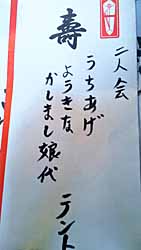 寿
二人会
うちあげ
ようきな
かしまし娘代
テント